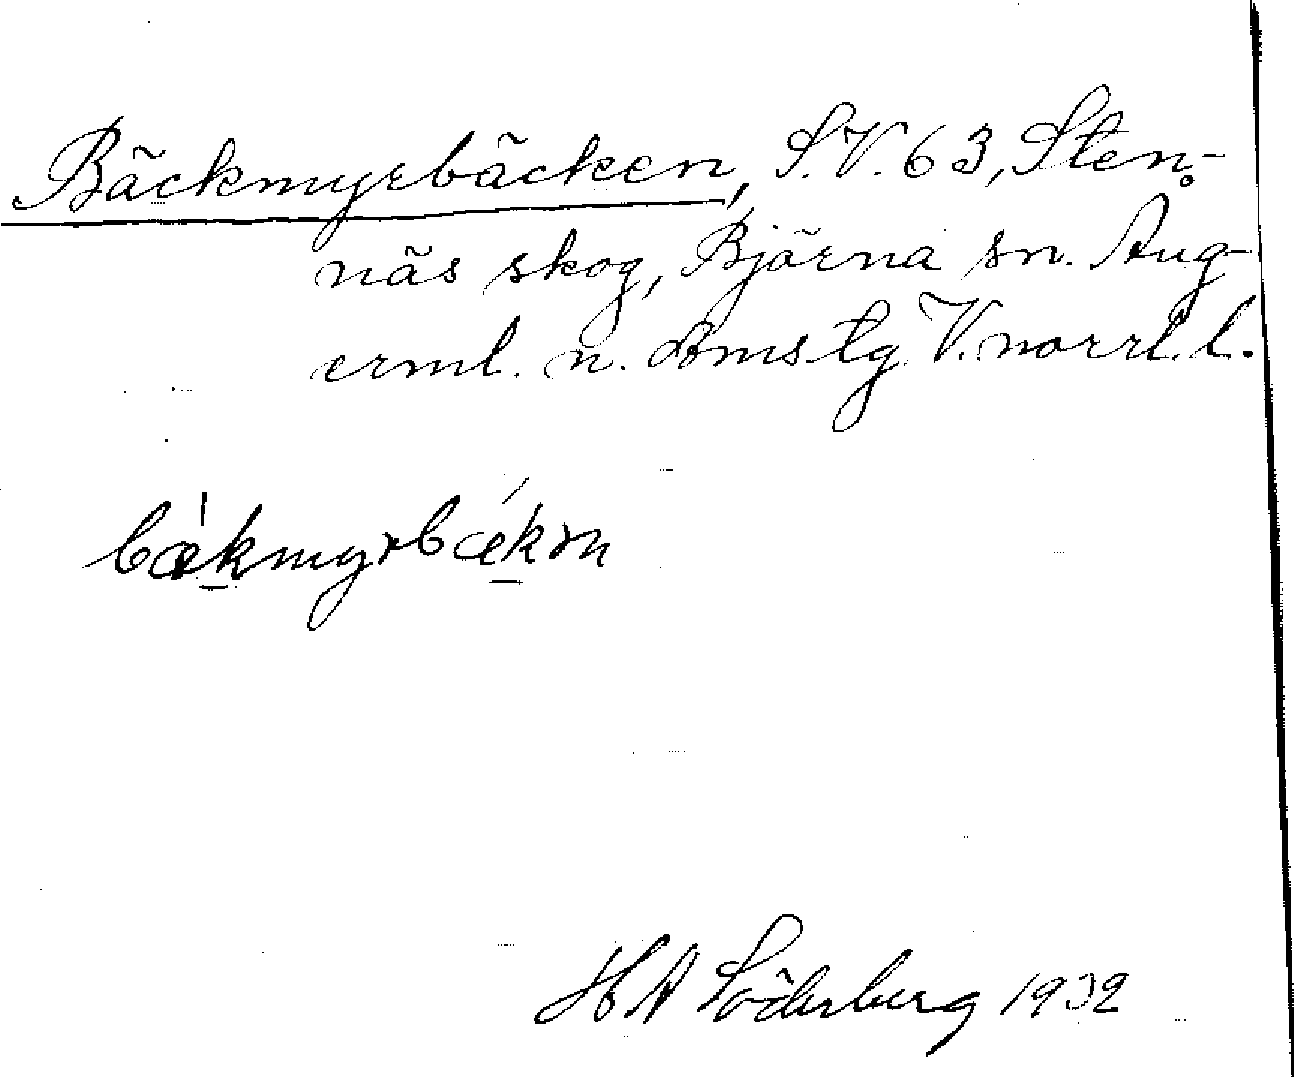 Bäckmyrbäcken, S.V. 63, Sten-
näs skog, Björna sn. Ång-
erml. n. domstg V. norrl. l.
bækmyrbækɘn
H A Söderberg 1932